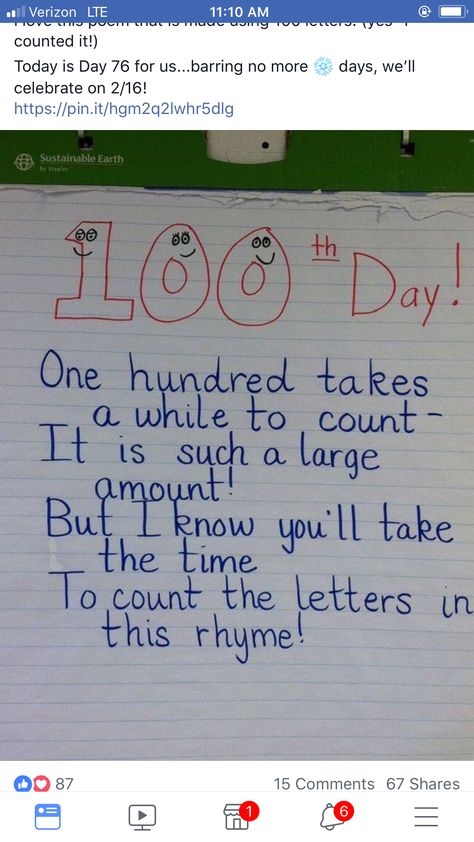 Verizon LTE 11:10 AM
I love this poem that is made using 100 letters! (yes - I
counted it!)
Today is Day 76 for us...barring no more ❄️ days, we'll
celebrate on 2/16!
https://pin.it/hgm2q2lwhr5dlg
Sustainable Earth
By Staples
100th Day!
One hundred takes
a while to count-
It is such a large
amount!
But I know you'll take
the time
To count the letters in
this rhyme!
87 15 Comments 67 Shares
1 6